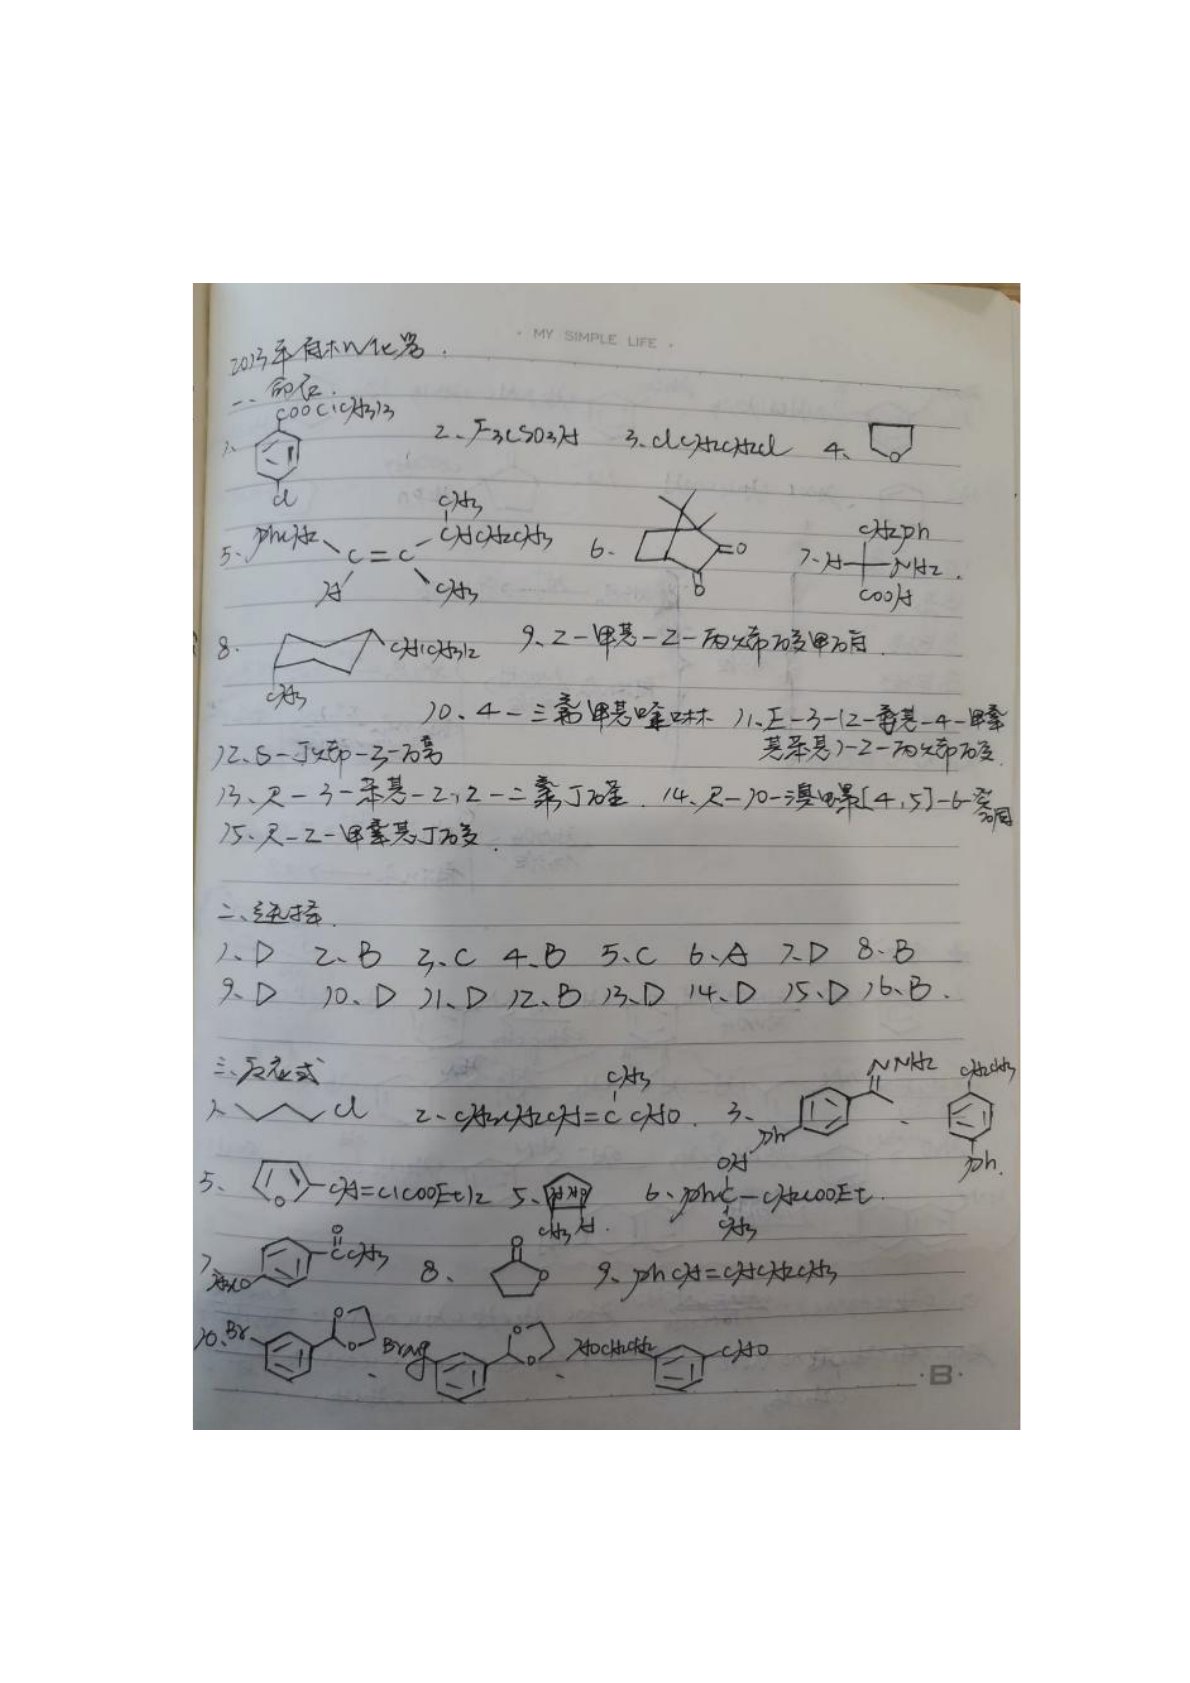 · MY SIMPLE LIFE ·
2013年有机化学.
一、命名.
1、 COOC(CH3)3 Cl 2、F3CSO3H 3、ClCH2CH2Cl 4、 O
5、 PhCH2 H C=C CH3 CHCH2CH3 CH3 6、 O O 7、 CH2Ph H NH2 COOH .
8、 CH(CH3)2 CH3 9、2-甲基-2-丙烯酸甲酯.
10、4-三氟甲基喹啉 11、E-3-(2-氨基-4-甲氧
基苯基)-2-丙烯酸.
12、S-丁烯-3-
13、R-3-苯基-2,2-二氯丁醛. 14、R-10-溴螺[4,5]-6-癸酮
15、R-2-甲氧基丁酸.
二、选择.
1、D 2、B 3、C 4、B 5、C 6、A 7、D 8、B
9、D 10、D 11、D 12、B 13、D 14、D 15、D 16、B.
三、反应式
1、 Cl 2、CH3CH2CH=C CHO CH3 . 3、 Ph NNH2 . CH2CH3 Ph.
5、 O CH=C(COOEt)2 5、 CH3 H . 6、PhC-CH2COOEt. OH CH3
7、 H3CO O CCH3 8、 O O 9、PhCH=CHCH2CH3
10、Br O O 、 BrMg O O . HOCH2CH2 CHO
·B·